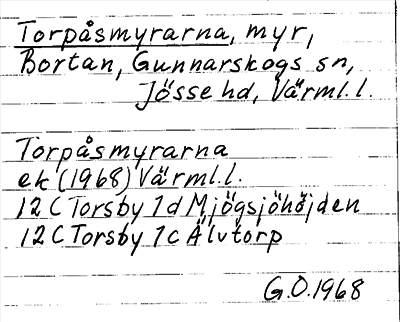 Torpåsmyrarna, myr,
Bortan, Gunnarskogs sn,
Jösse hd, Värml.l.
Torpåsmyrarna
ek (1968) Värml.l.
12 C Torsby 1d Mjögsjöhöjden
12 C Torsby 1c Älvtorp
G.O.1968